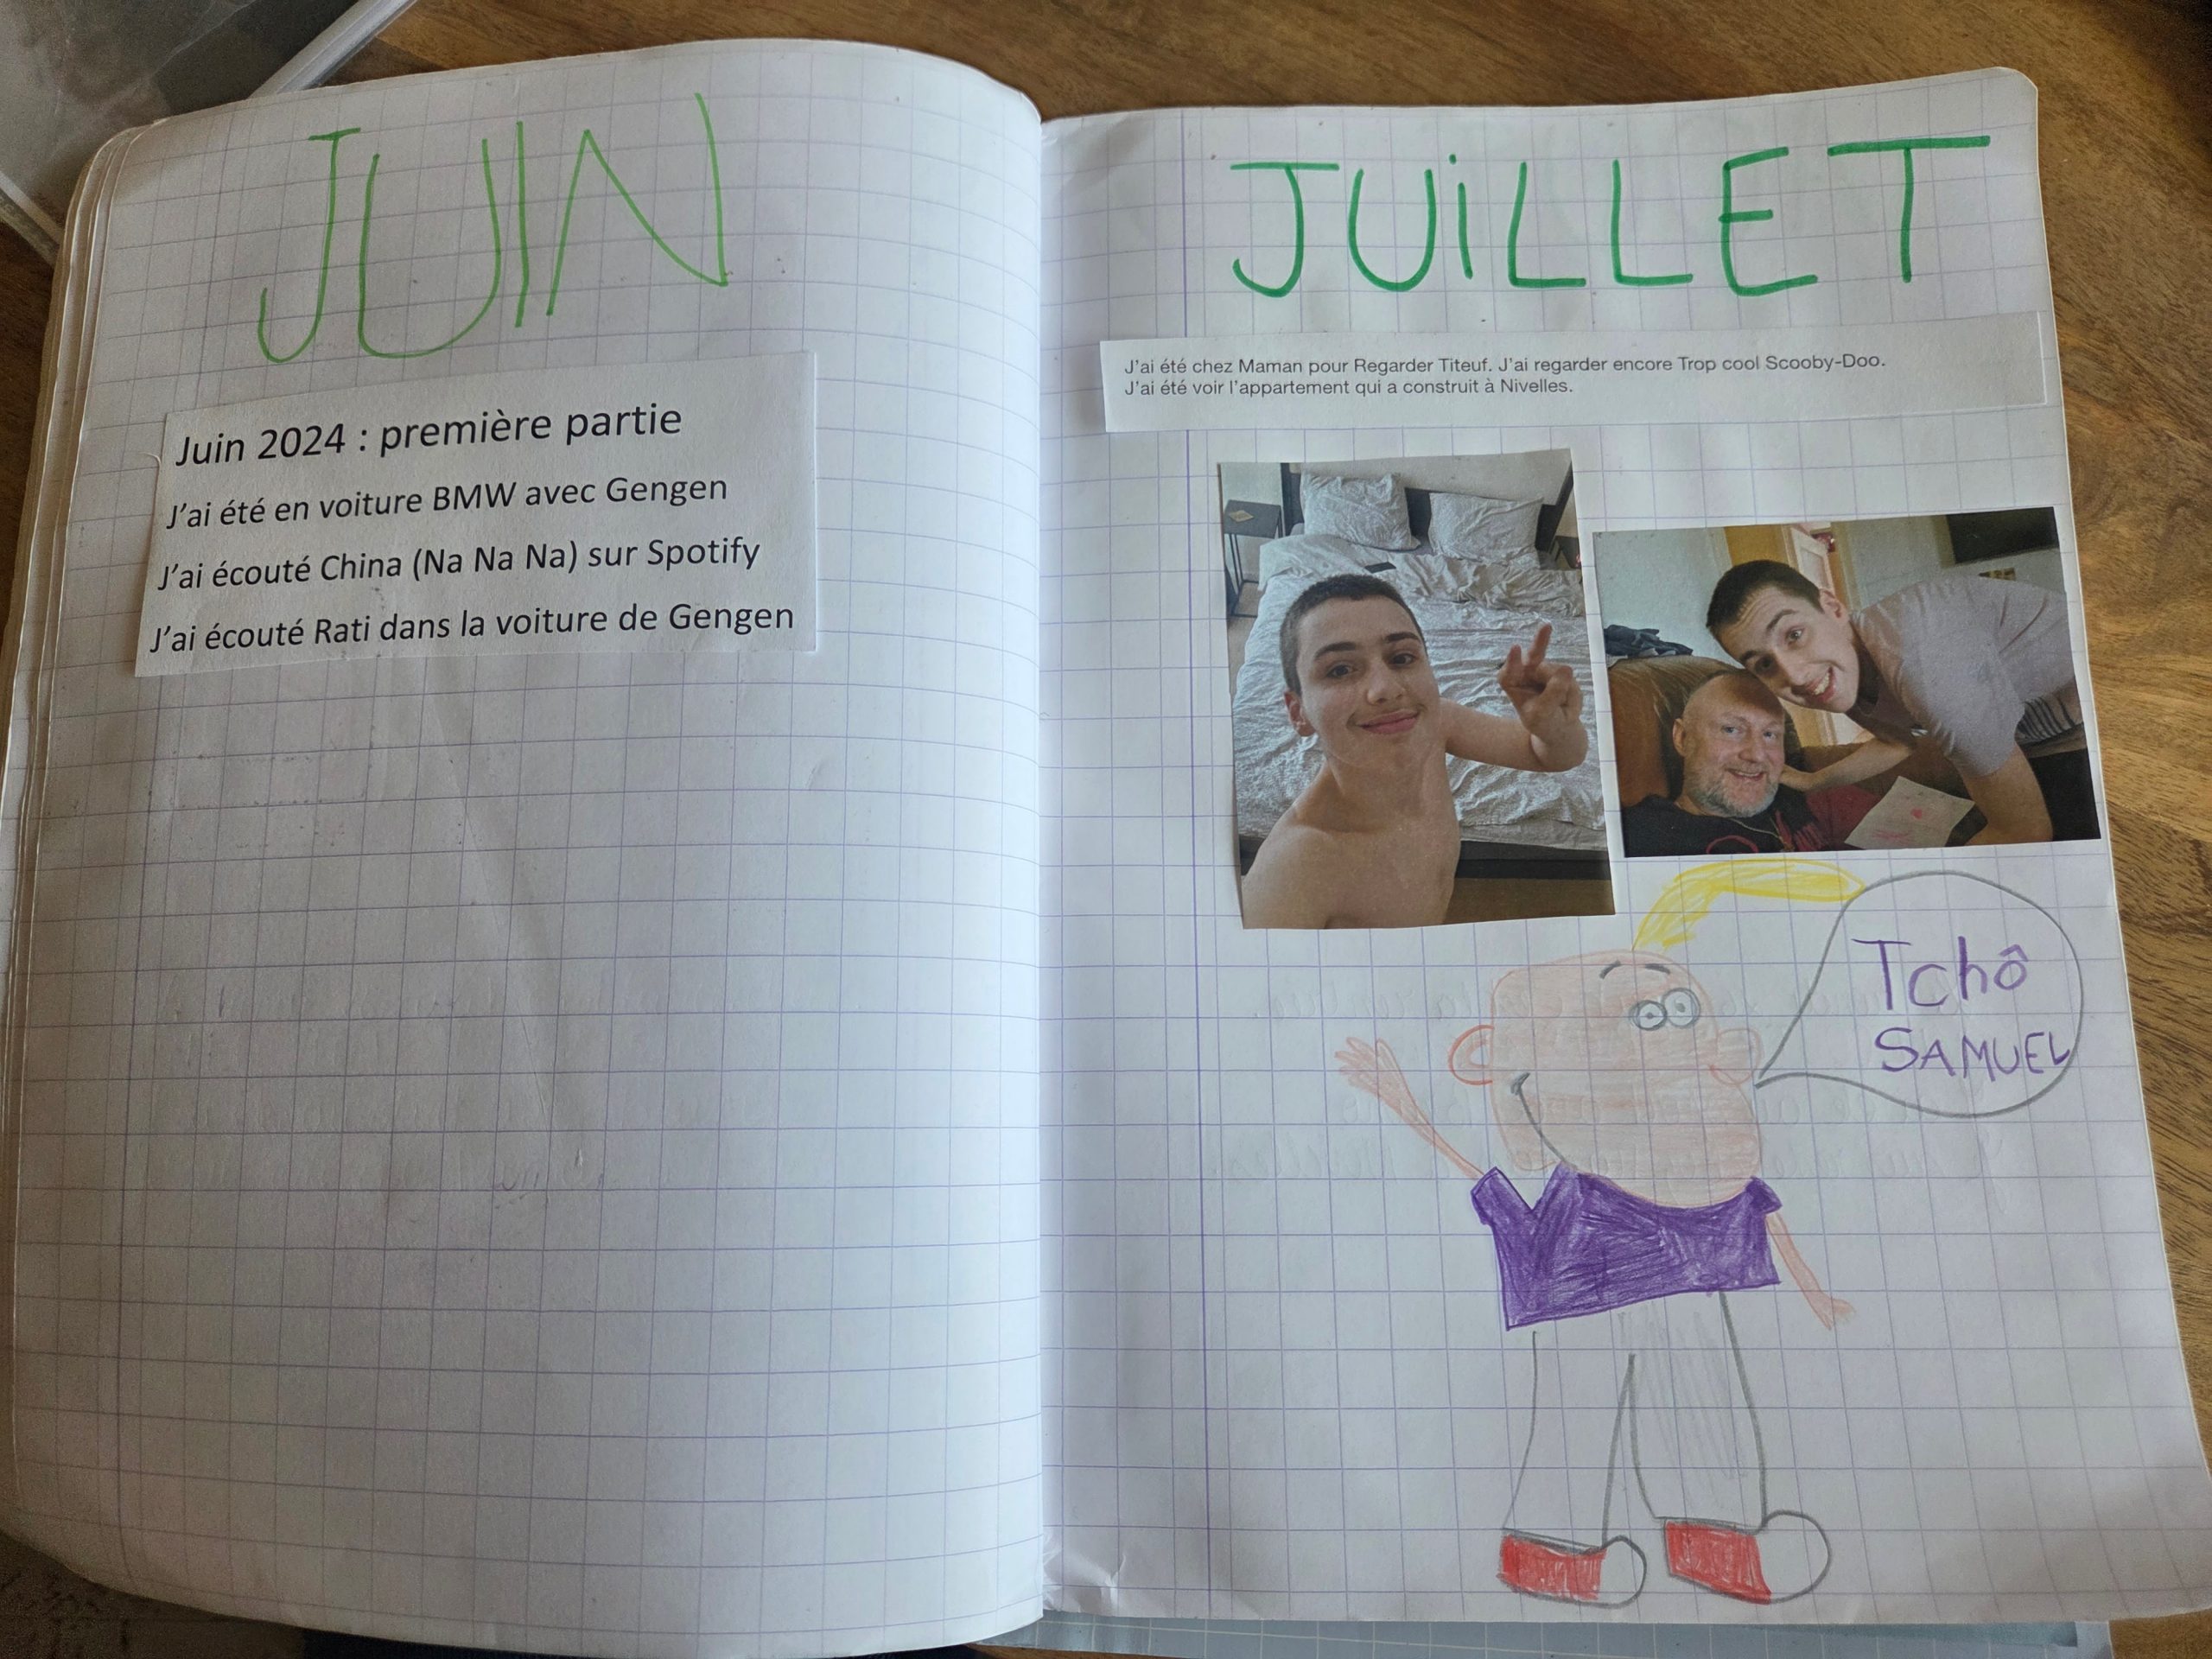 JUIN
Juin 2024 : première partie
J'ai été en voiture BMW avec Gengen
J'ai écouté China (Na Na Na) sur Spotify
J'ai écouté Rati dans la voiture de Gengen
JUiLLET
J'ai été chez Maman pour Regarder Titeuf. J'ai regarder encore Trop cool Scooby-Doo.
J'ai été voir l'appartement qui a construit à Nivelles.
Tchô
SAMUEL